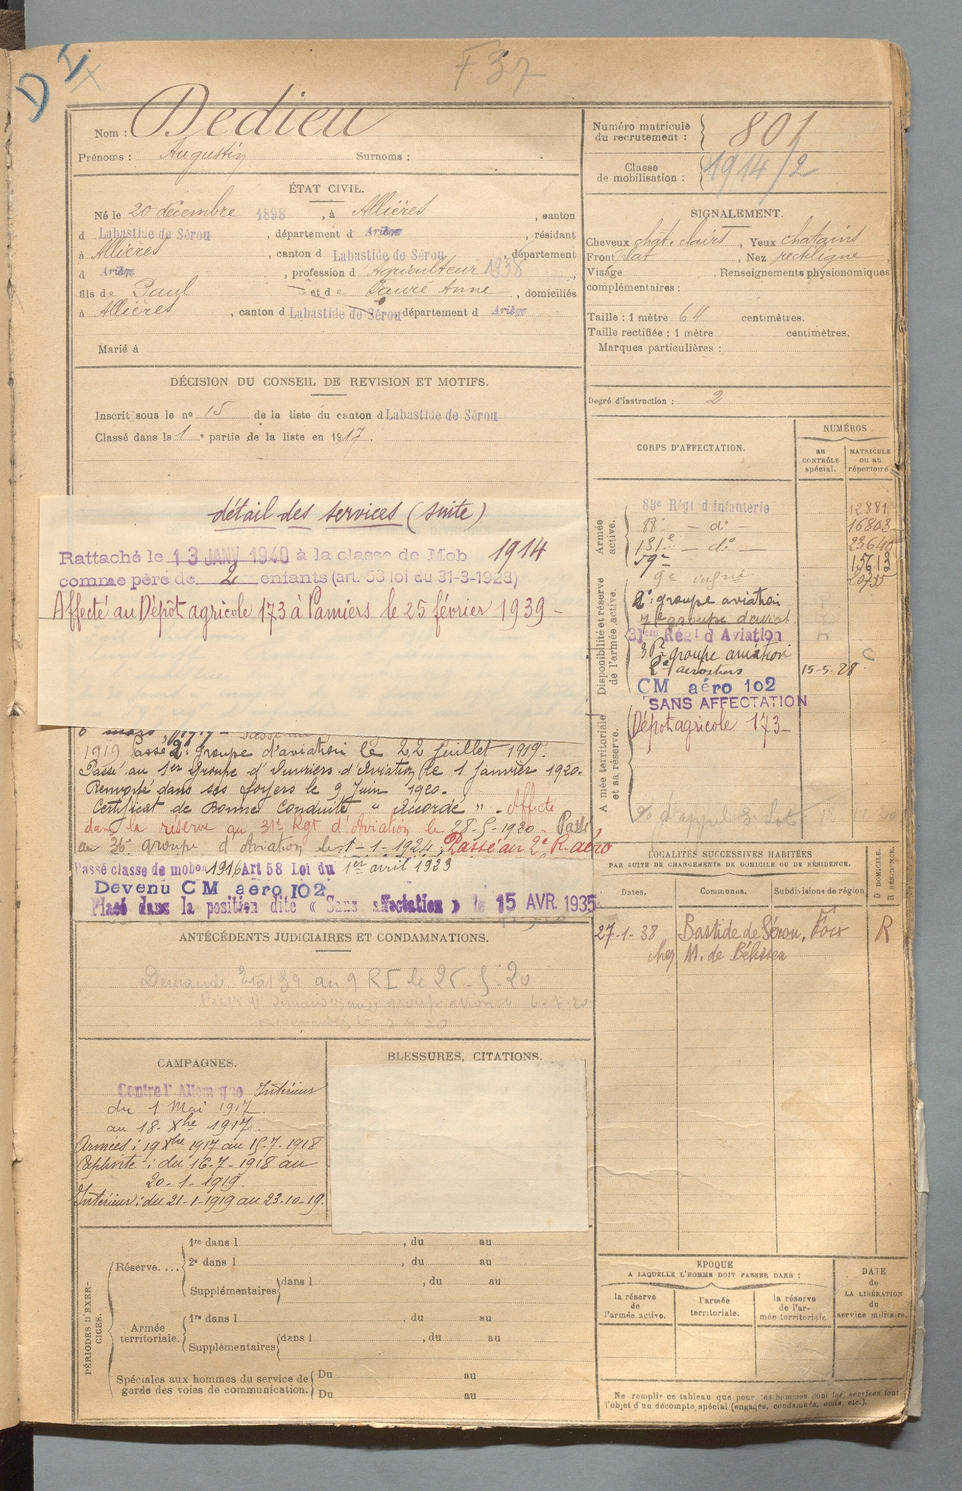 D I
F 37
Nom : Dedieu
Prénoms : Augustin Surnoms :
ÉTAT CIVIL.
Né le 20 décembre 1898, à Allières, canton
d Labastide de Sérou, département d Ariège, résidant
à Allières, canton d Labastide de Sérou, département
d Ariège, profession d Agriculteur 1938
fils de Paul et de Sauré Anne, domiciliés
à Allières, canton d Labastide de Sérou département d Ariège
Marié à
DÉCISION DU CONSEIL DE REVISION ET MOTIFS.
Inscrit sous le no 15 de la liste du canton d Labastide de Sérou
Classé dans la 1e partie de la liste en 1917.
détail des services (suite)
Rattaché le 13 JANV 1940 à la classe de Mob 1914
comme père de 2 enfants (art. 58 loi du 31-3-1928)
Affecté au Dépôt agricole 173 à Pamiers le 25 février 1939 –
1919 Passé 2e groupe d'aviation le 22 juillet 1919.
Passé au 1er Groupe d'Ouvriers d'Aviation le 1 Janvier 1920.
Renvoyé dans ses foyers le 9 Juin 1920.
Certificat de Bonne Conduite "Accordé". Affecté
dans la réserve au 31e Rgt d'Aviation le 28-5-1920. Passé
au 36e groupe d'Aviation le 1-1-1924. Passé au 2e R. aéro
Passé classe de mobon 1916 Art 58 Loi du 1er avril 1923
Devenu CM aéro 102
Placé dans la position dite « Sans affectation » le 15 AVR. 1935
ANTÉCÉDENTS JUDICIAIRES ET CONDAMNATIONS.
Demandé Etat 39 au 9 RI le 25-5-20
CAMPAGNES.
Contre l'Allemagne Intérieur
du 1 Mai 1917
au 18 Xbre 1917.
Armées : 19 Xbre 1917 au 15-7-1918
Captivité : du 16-7-1918 au
20-1-1919.
Intérieur : du 21-1-1919 au 23-10-19.
BLESSURES, CITATIONS.
PÉRIODES D'EXERCICES.
Réserve....
1re dans l , du au
2e dans l , du au
Supplémentaires dans l , du au
Armée territoriale.
1re dans l , du au
Supplémentaires dans l , du au
Spéciales aux hommes du service de garde des voies de communication.
Du au
Du au
Numéro matricule du recrutement : 801
Classe de mobilisation : 1914/2
SIGNALEMENT.
Cheveux chât. clairs, Yeux chatains
Front plat, Nez rectiligne
Visage , Renseignements physionomiques
complémentaires :
Taille : 1 mètre 64 centimètres.
Taille rectifiée : 1 mètre centimètres.
Marques particulières :
Degré d'instruction : 2
CORPS D'AFFECTATION.
NUMÉROS
AU CONTRÔLE spécial.
MATRICULE OU AU répertoire
Armée active.
83e Régt d'infanterie 12881
88e – do – 16803
131e – do – 23640
59e 15613
9e 20735
Disponibilité et réserve de l'armée active.
2e groupe aviation
31em Régt d'Aviation
36e groupe aviation
2e aérostiers 15-5-28
CM aéro 102
SANS AFFECTATION
Armée territoriale et sa réserve.
Dépôt agricole 173 –
LOCALITÉS SUCCESSIVES HABITÉES
PAR SUITE DE CHANGEMENTS DE DOMICILE OU DE RÉSIDENCE.
Dates. Communes. Subdivisions de région
D DOMICILE. R RÉSIDENCE.
27-1-38 Bastide de Sérou, Foix R
chez M. de Bélissen
ÉPOQUE
A LAQUELLE L'HOMME DOIT PASSER DANS :
la réserve de l'armée active.
l'armée territoriale.
la réserve de l'armée territoriale.
DATE de LA LIBÉRATION du service militaire.
Ne remplir ce tableau que pour les hommes dont les services font
l'objet d'un décompte spécial (engagés, condamnés, omis, etc.).